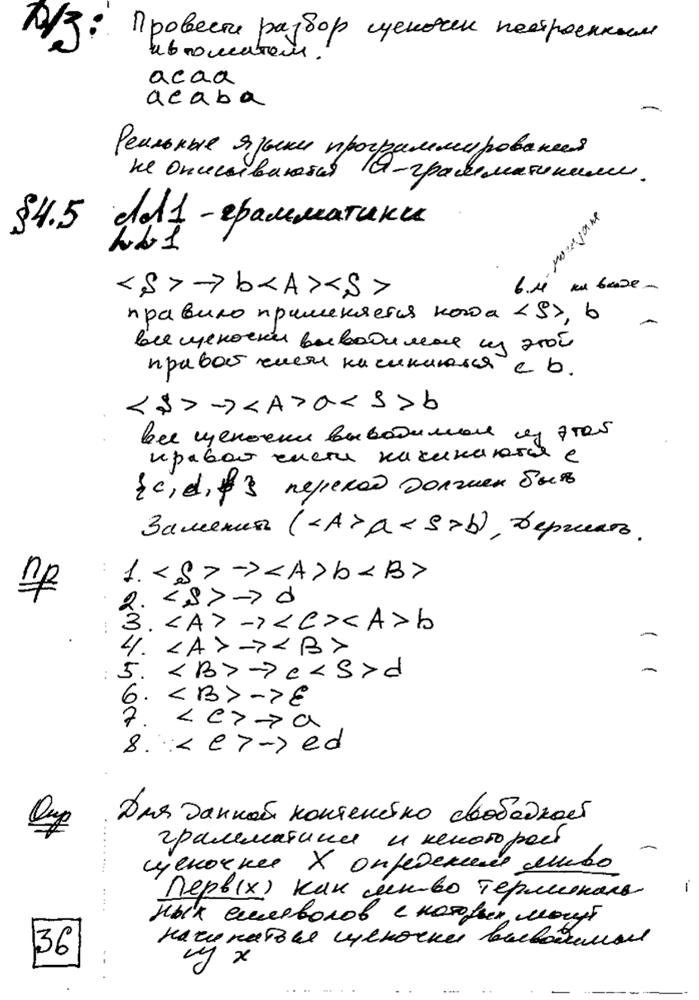 Д/з: Провести разбор цепочек построенным
автоматом.
acaa
acaba
Реальные языки программирования
не описываются Q-грамматиками.
§4.5 LL1 - грамматики
LL1
<S> → b<A><S>
правило применяется когда <S>, b
все цепочки выводимые из этой
правой части начинаются с b.
<S> → <A>a<S>b
все цепочки выводимые из этой
правой части начинаются с
{c, d, f} переход должен быть
Заменить (<A>a<S>b), Держать.
Пр
1. <S> → <A>b<B>
2. <S> → d
3. <A> → <C><A>b
4. <A> → <B>
5. <B> → c<S>d
6. <B> → ε
7. <C> → a
8. <C> → ed
Опр Для данной контекстно свободной
грамматики и некоторой
цепочки X определим мн-во
Перв(x) как мн-во терминаль-
ных символов с которых могут
начинаться цепочки выводимые
из x
36